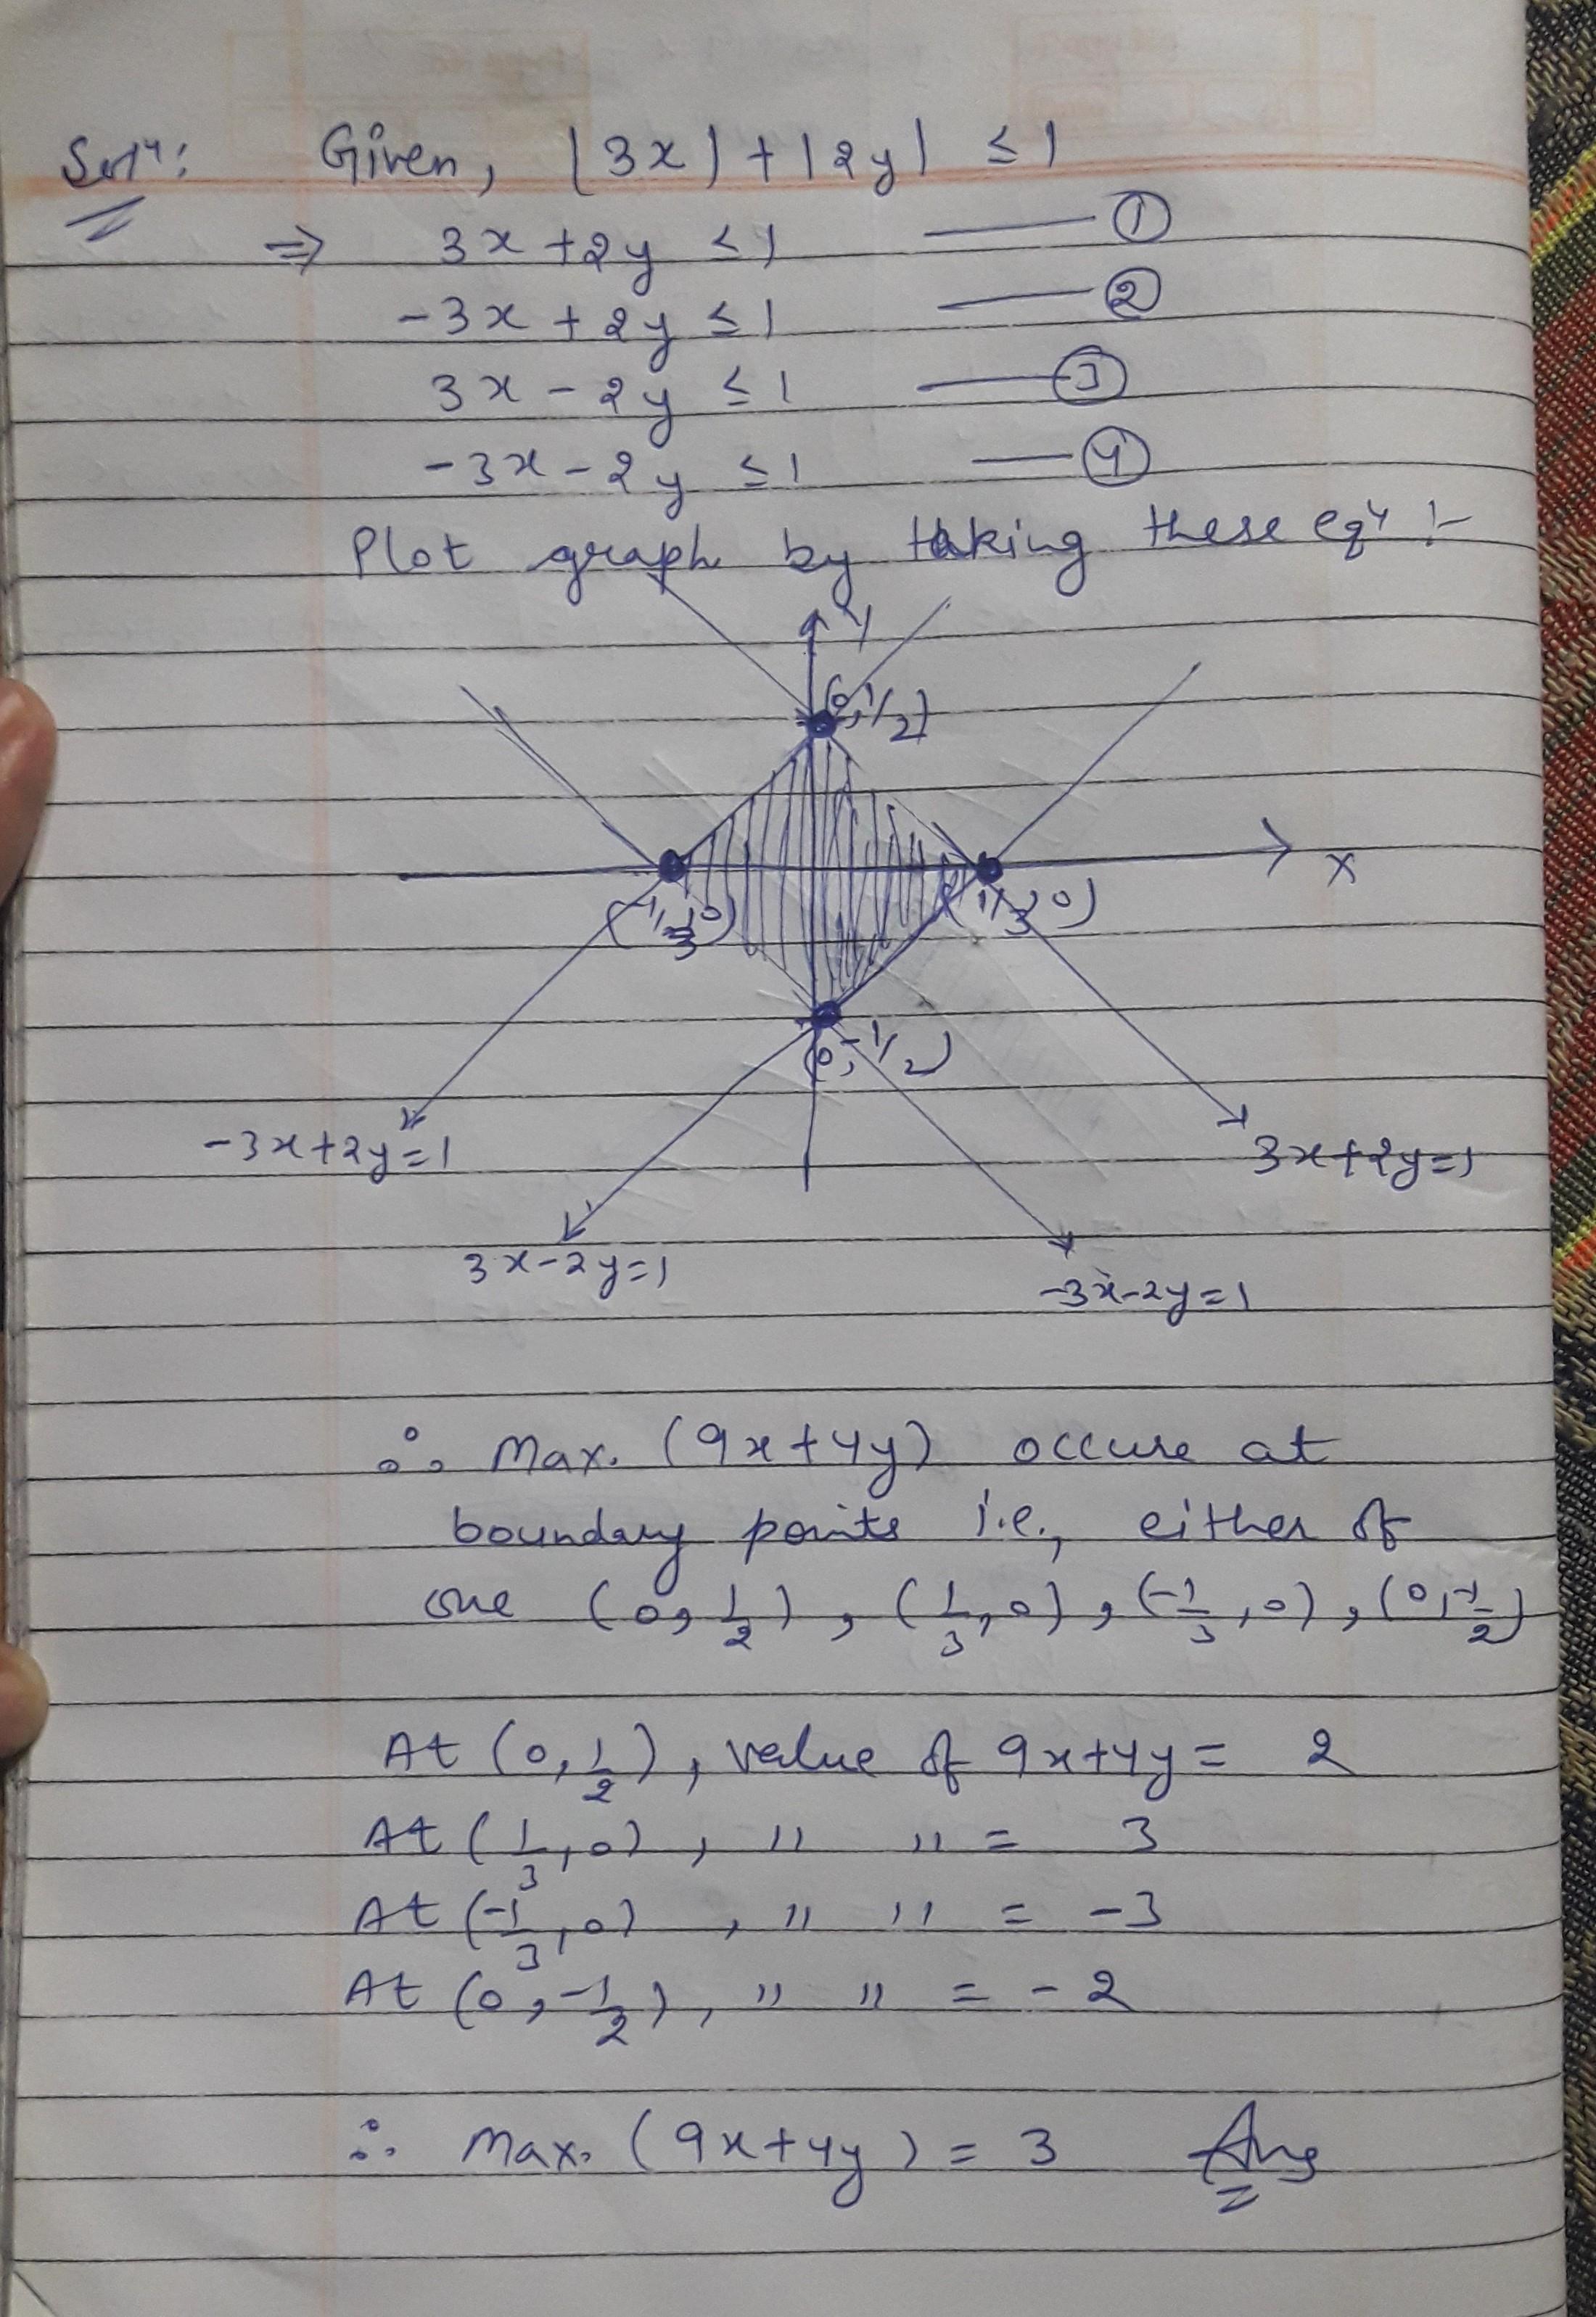 Solⁿ: Given, |3x|+|2y| ≤ 1
⇒ 3x+2y ≤ 1 —— ①
-3x+2y ≤ 1 —— ②
3x-2y ≤ 1 —— ③
-3x-2y ≤ 1 —— ④
Plot graph by taking these eqⁿ :-
y
(0,1/2)
x
(-1/3,0) (1/3,0)
(0,-1/2)
-3x+2y=1 3x+2y=1
3x-2y=1 -3x-2y=1
∴ Max. (9x+4y) occure at
boundary points i.e., either of
one (0,1/2), (1/3,0), (-1/3,0), (0,-1/2)
At (0,1/2), value of 9x+4y = 2
At (1/3,0), " " = 3
At (-1/3,0), " " = -3
At (0,-1/2), " " = -2
∴ Max. (9x+4y) = 3 Ans